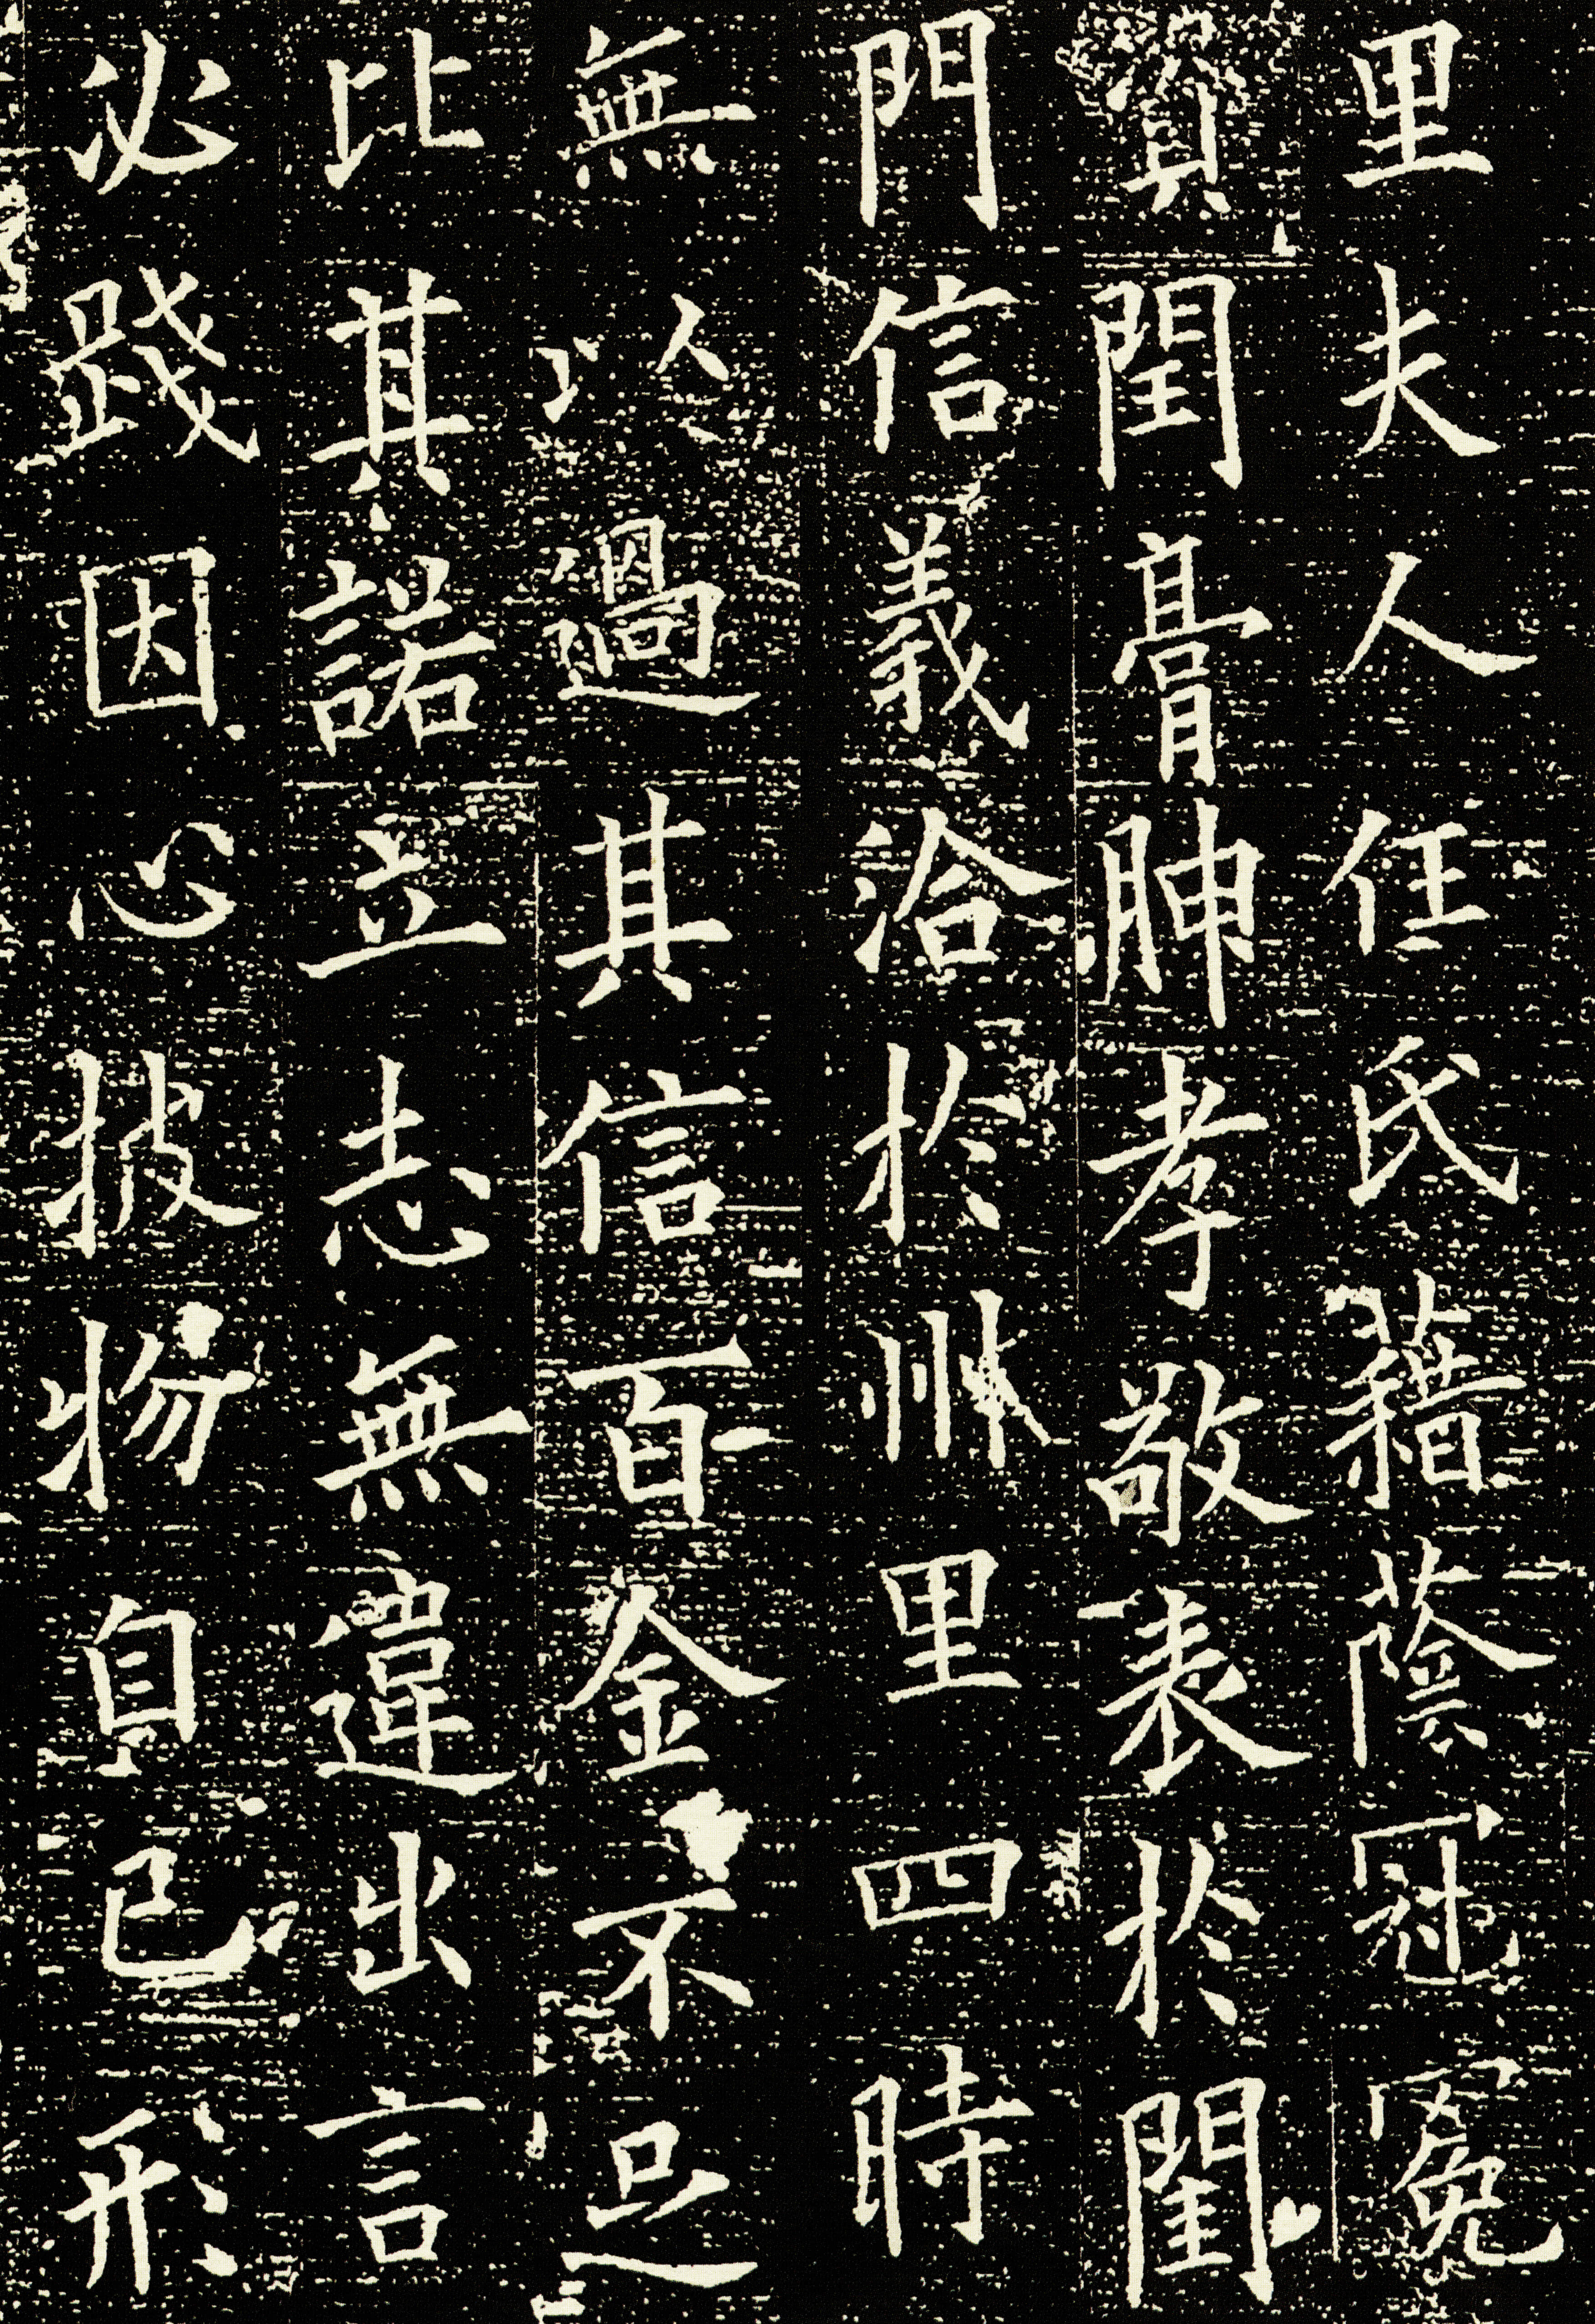 里夫人任氏藉蔭冠冕
閏膏腴孝敬表於閨
門信義洽於州里四時
無以過其信百金不足
比其諾立志無違出言
必踐因心披物自己形